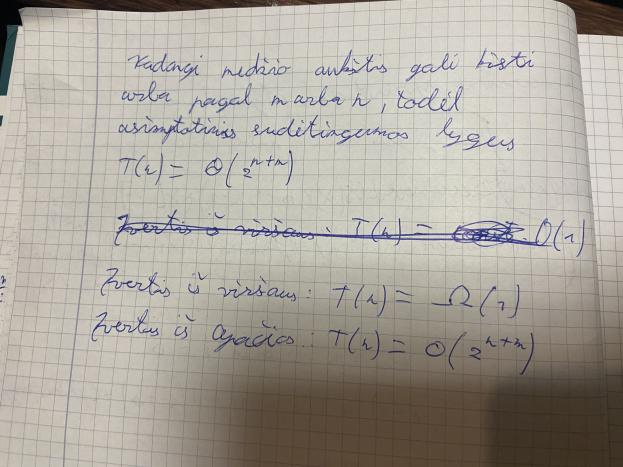 Kadangi medžio aukštis gali kisti
arba pagal m arba n, todėl
asimptotinis sudėtingumas lygus
T(n) = Θ(2^{n+m})
Įvertis iš viršaus: T(n) = O(1)
Įvertis iš viršaus: T(n) = Ω(1)
Įvertis iš apačios: T(n) = O(2^{n+m})